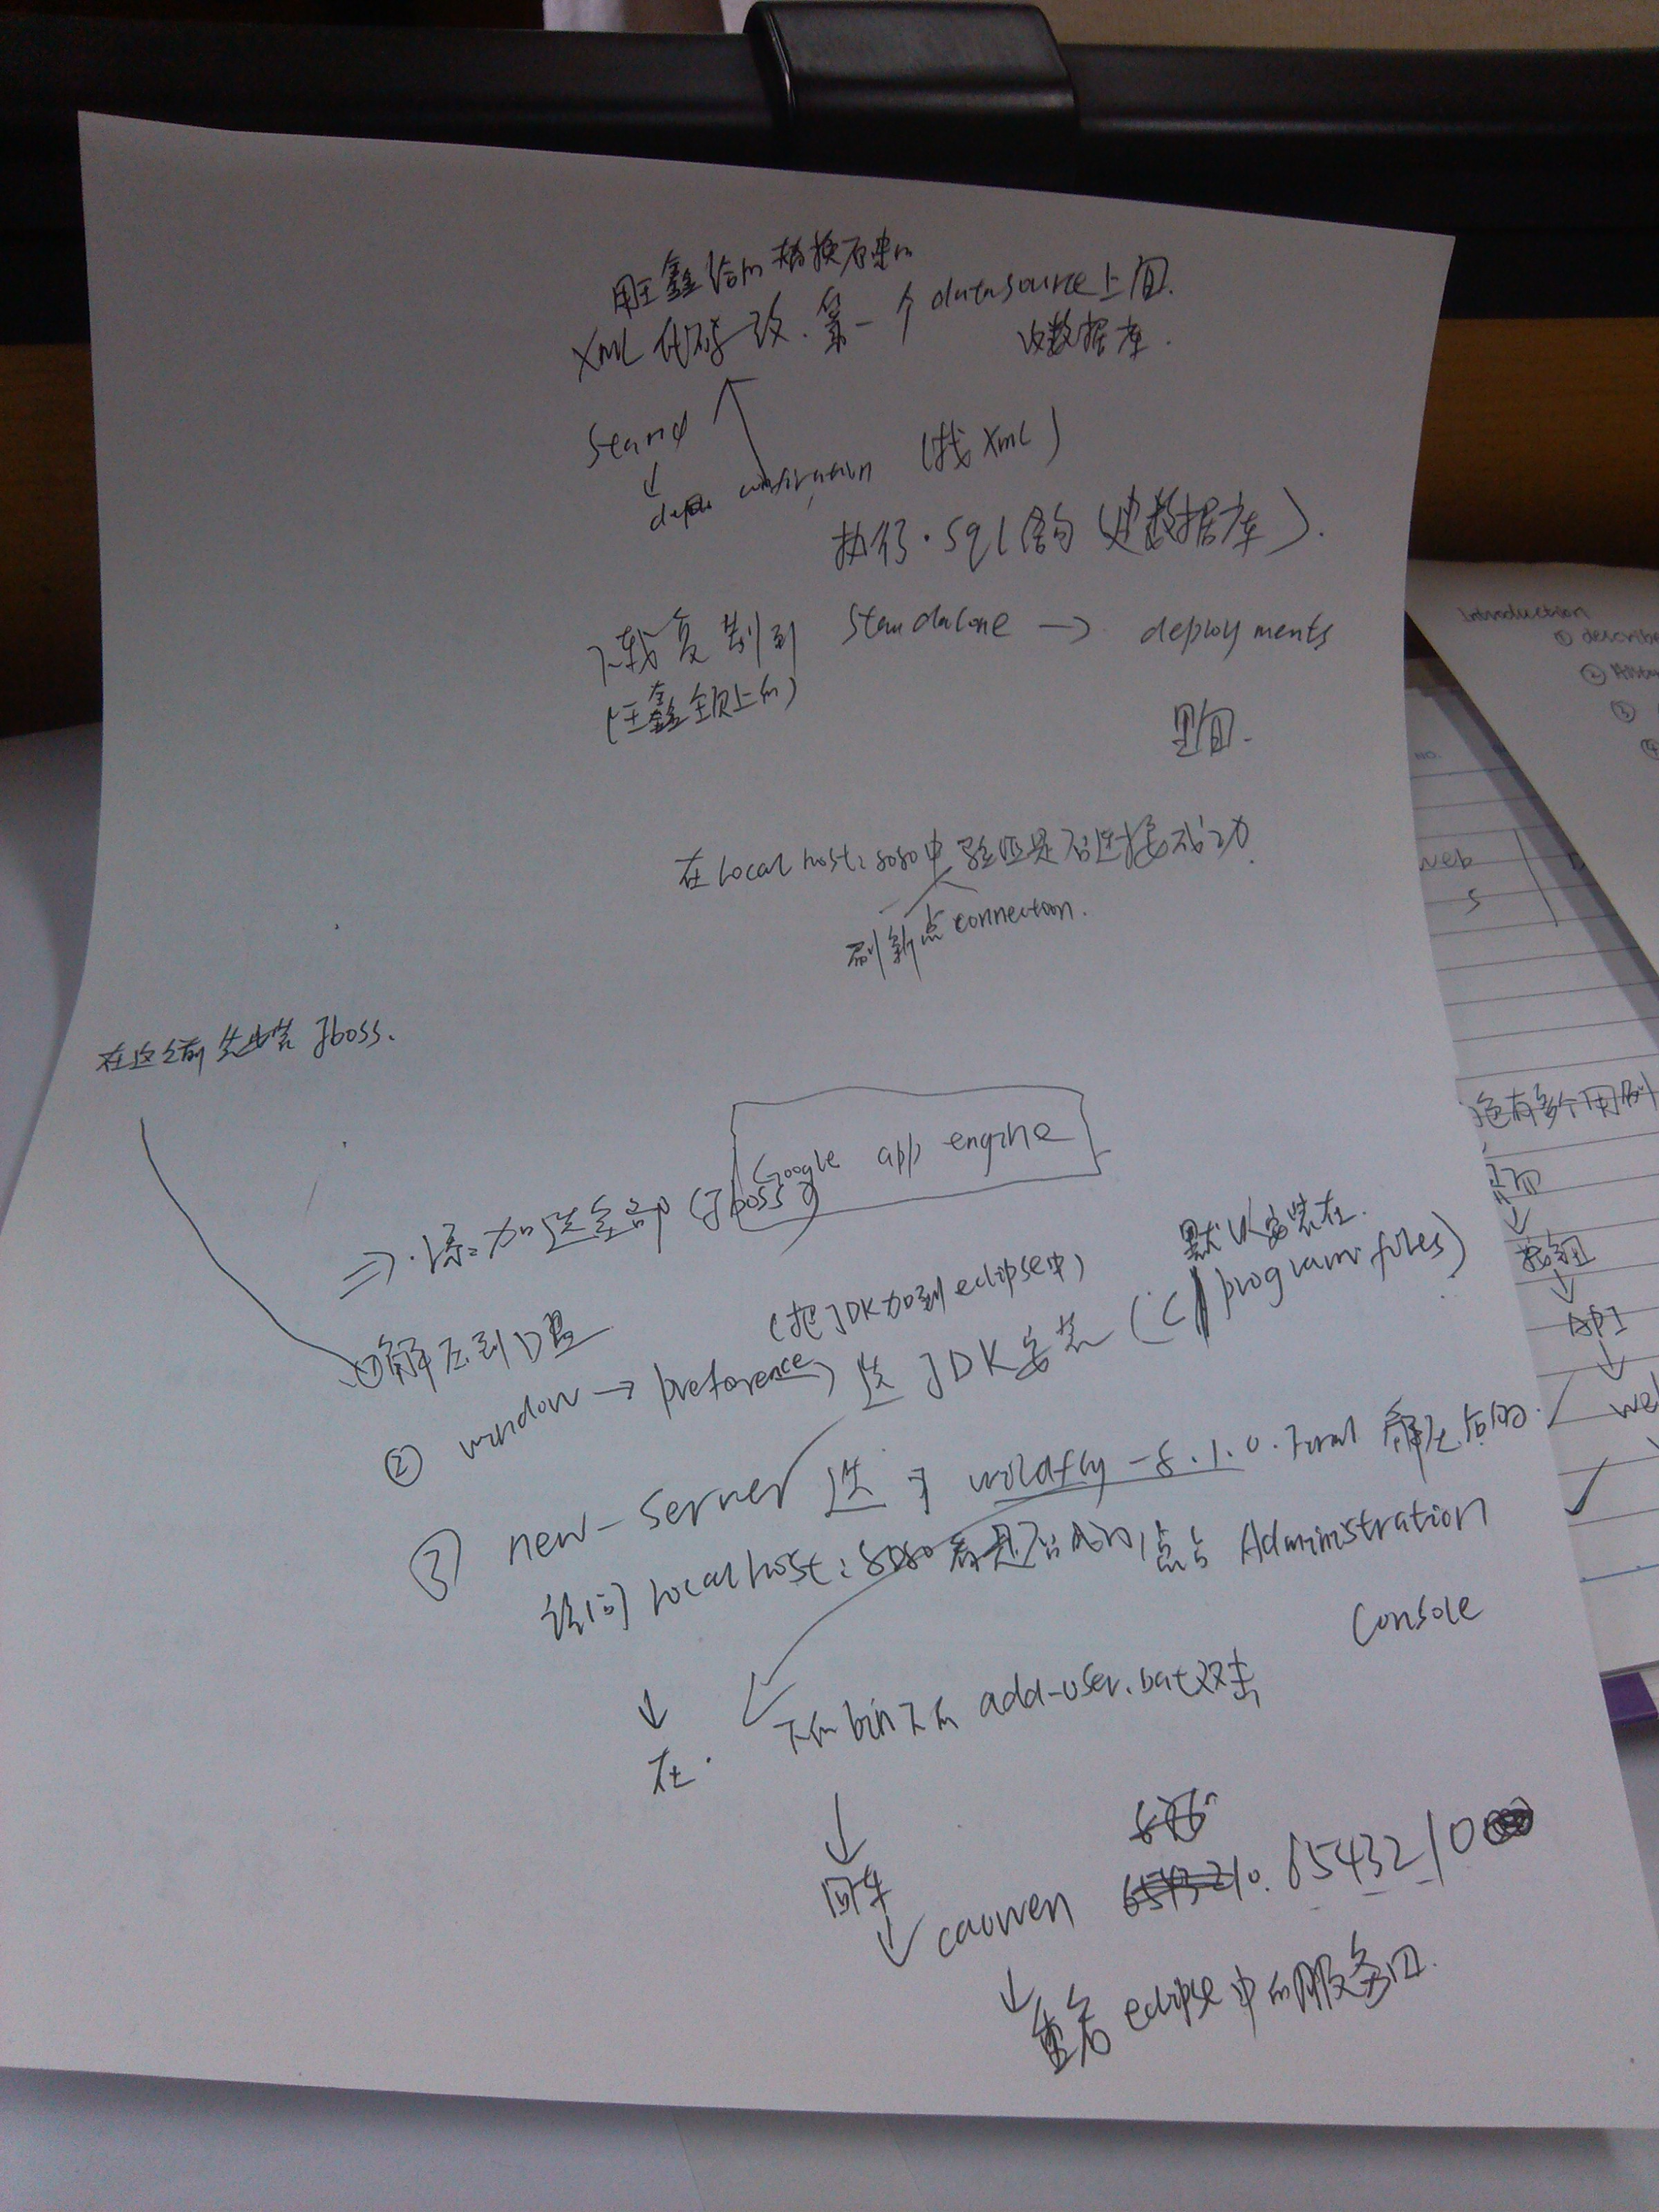 用王鑫给的替换原来的
XML 代码改.第一个datasource上面.
改数据库.
Stand
↓
(找 XML)
执行.sql语句(建数据库).
下载复制到 standalone → deployments
(王鑫 上的)
里面.
在Localhost:8080中验证是否连接成功.
刷新点connection.
在这之前先安装 Jboss.
Google app engine
⇒ 添加 全部 (Jboss)
默认安装在.
(把JDK加到eclipse中)
①解压到D盘
② window → preference 选 JDK安装 (C program files)
③ new-server 选 wildfly-8.1.0.Final 解压后的.
访问 localhost:8080 看是否成功,点击 Administration
Console
↓
在. 下的bin下的 add-user.bat双击
↓
回车
↓
caowen 6543210
↓
重启 eclipse中的服务
Introduction
① describe
②
③
④
NO.
web
S
有多个用例
↓
按钮
↓
API
↓
we